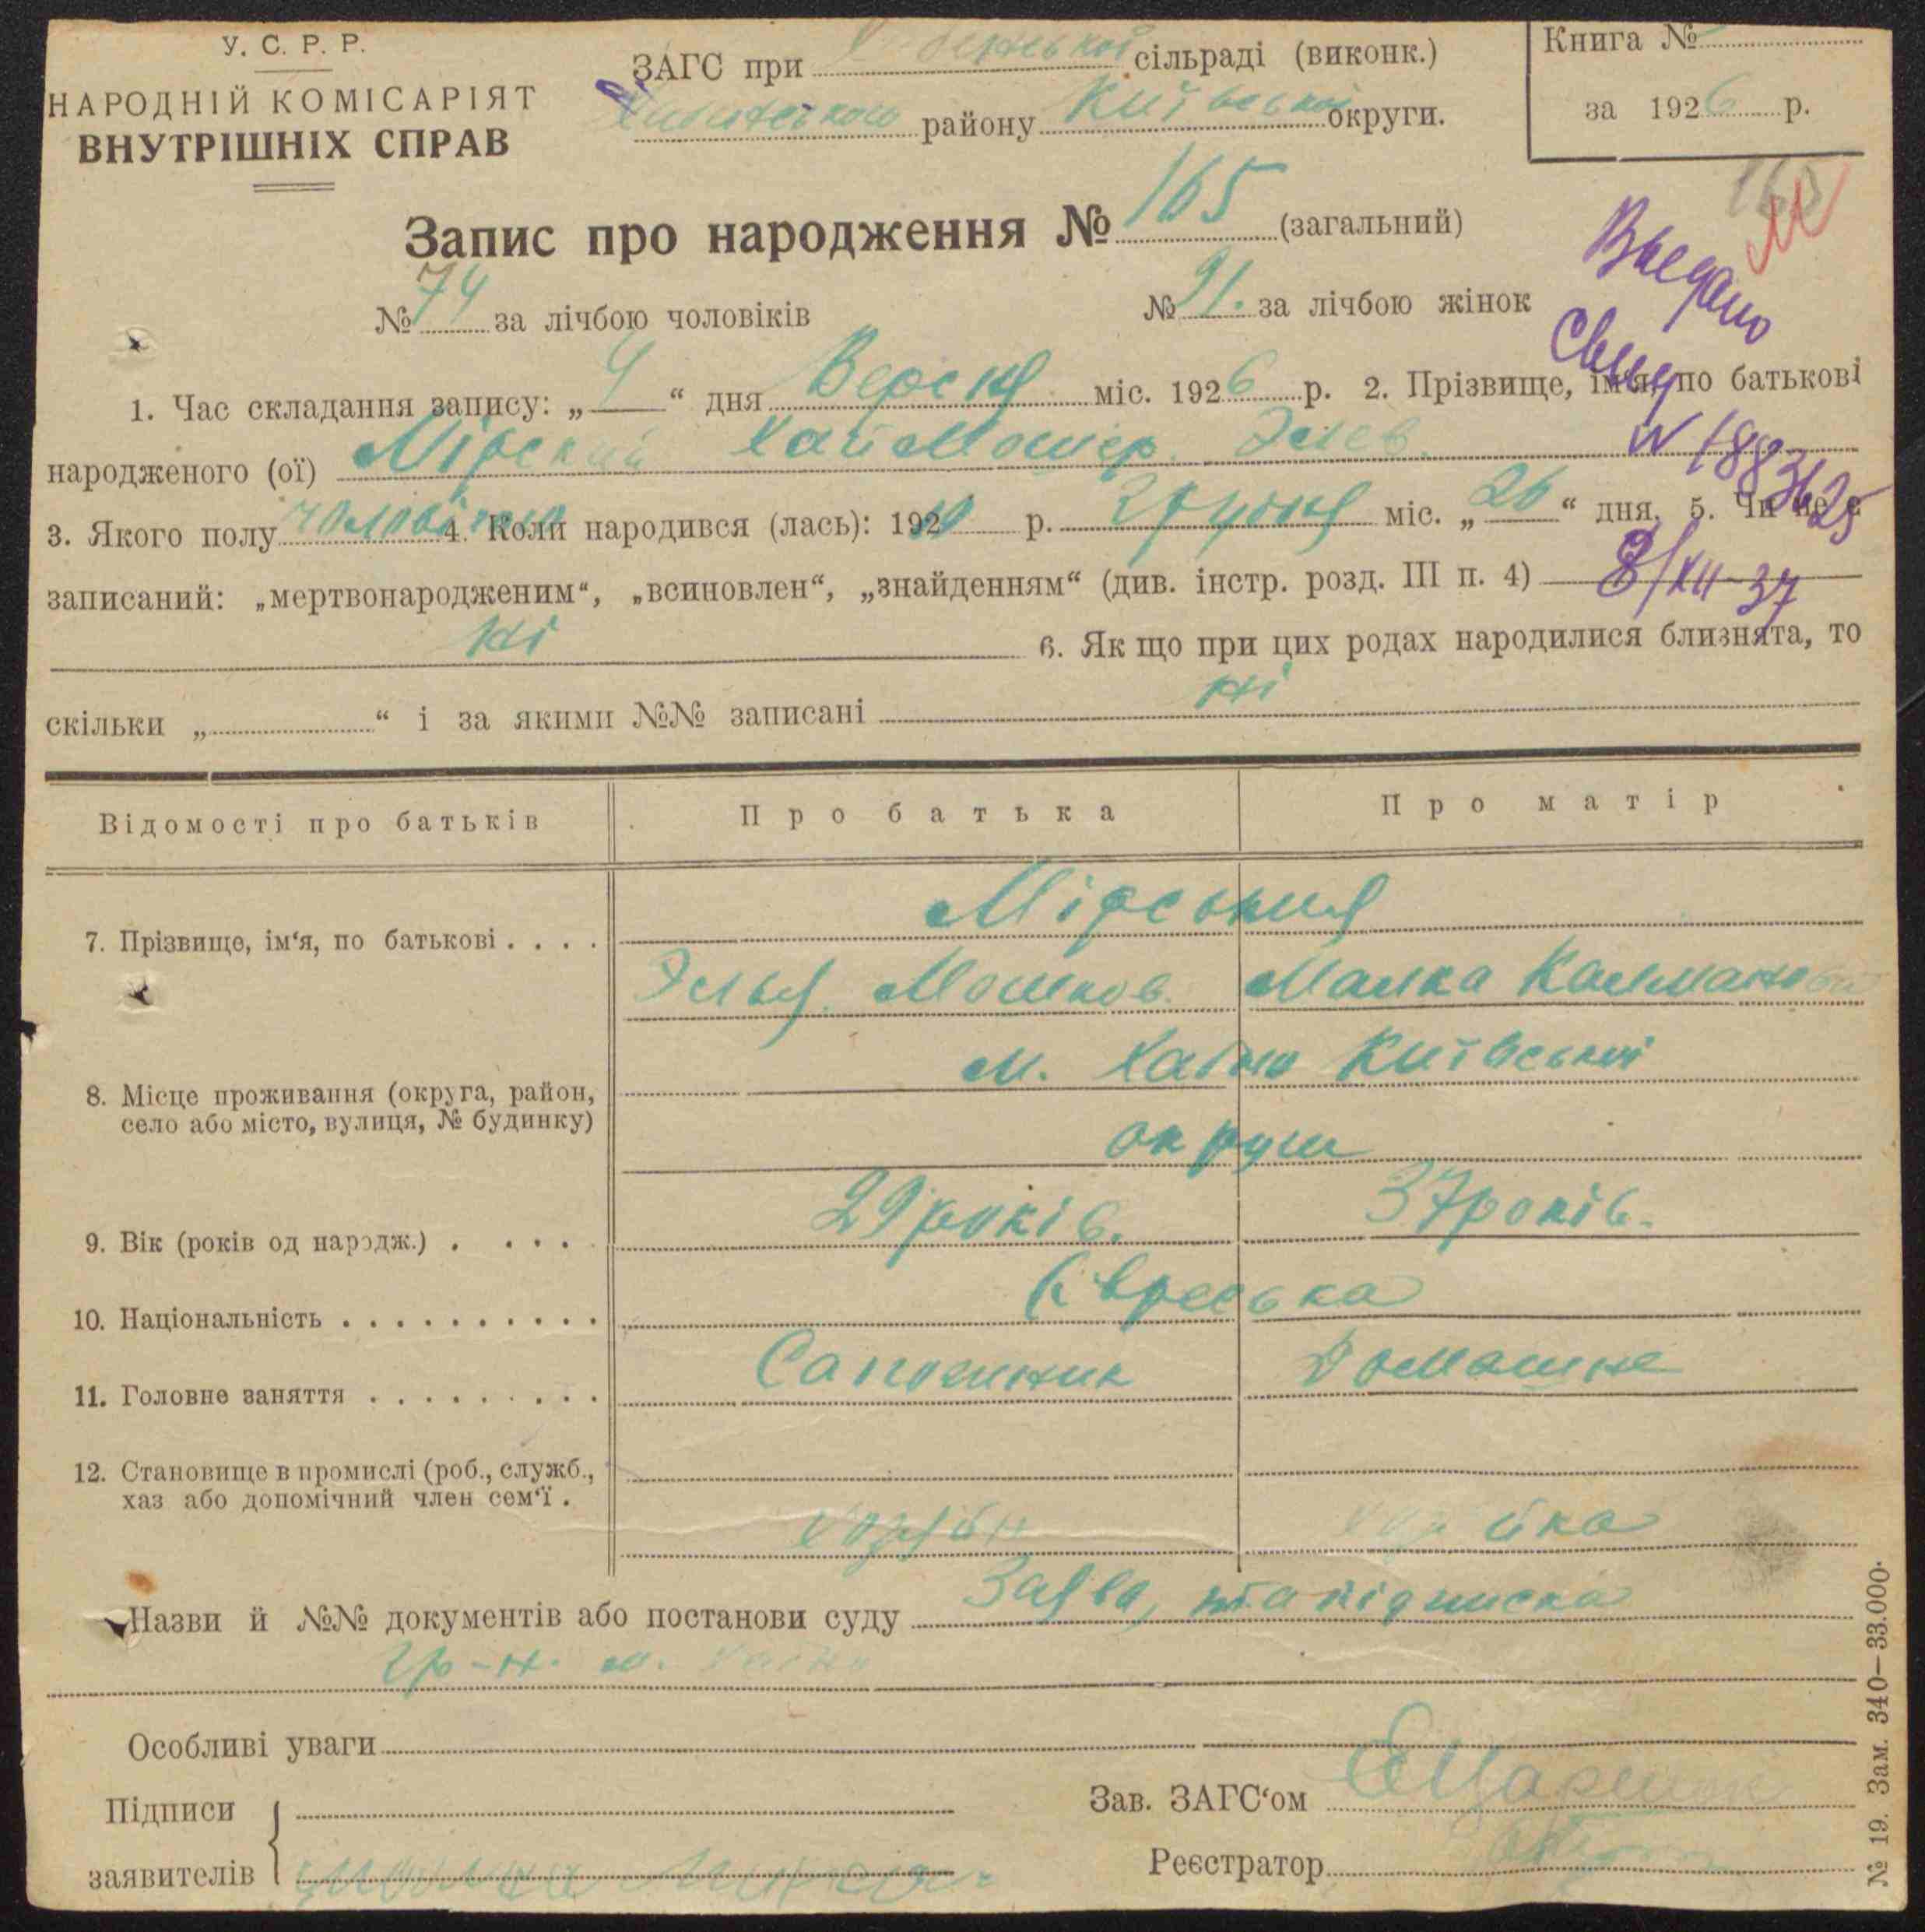 У. С. Р. Р.
НАРОДНІЙ КОМІСАРІЯТ
ВНУТРІШНІХ СПРАВ
ЗАГС при сільраді (виконк.)
району Київської округи.
Книга №
за 1926 р.
Запис про народження № 165 (загальний)
№ 74 за лічбою чоловіків № 91. за лічбою жінок
Выдано
1. Час складання запису: „4“ дня Версня міс. 1926 р. 2. Прізвище, ім'я, по батькові
народженого (ої) Мірский Элев.
3. Якого полу 4. Коли народився (лась): 1920 р. Грудня міс. „26“ дня. 5. Чи не є
записаний: „мертвонародженим“, „всиновлен“, „знайденням“ (див. інстр. розд. III п. 4) 8/XII-37
ні 6. Як що при цих родах народилися близнята, то
скільки „ “ і за якими №№ записані ні
Відомості про батьків Про батька Про матір
7. Прізвище, ім'я, по батькові . . . . Мірськия
Элья. Мошков. Малка Калманов
8. Місце проживання (округа, район, село або місто, вулиця, № будинку) м. Хабно Київської
округи
9. Вік (років од нарэдж.) . . . . 29 років. 37 років.
10. Національність . . . . . . . . . . Євреська
11. Головне заняття . . . . . . . . . Сапожник Домашне
12. Становище в промислі (роб., служб.,
хаз або допомічний член сем'ї . Хозяін
Назви й №№ документів або постанови суду Заява, та підписка
гр-н. м. Хабн
Особливі уваги
Підписи
заявителів
Зав. ЗАГС'ом
Реєстратор
№ 19. Зам. 340—33.000.